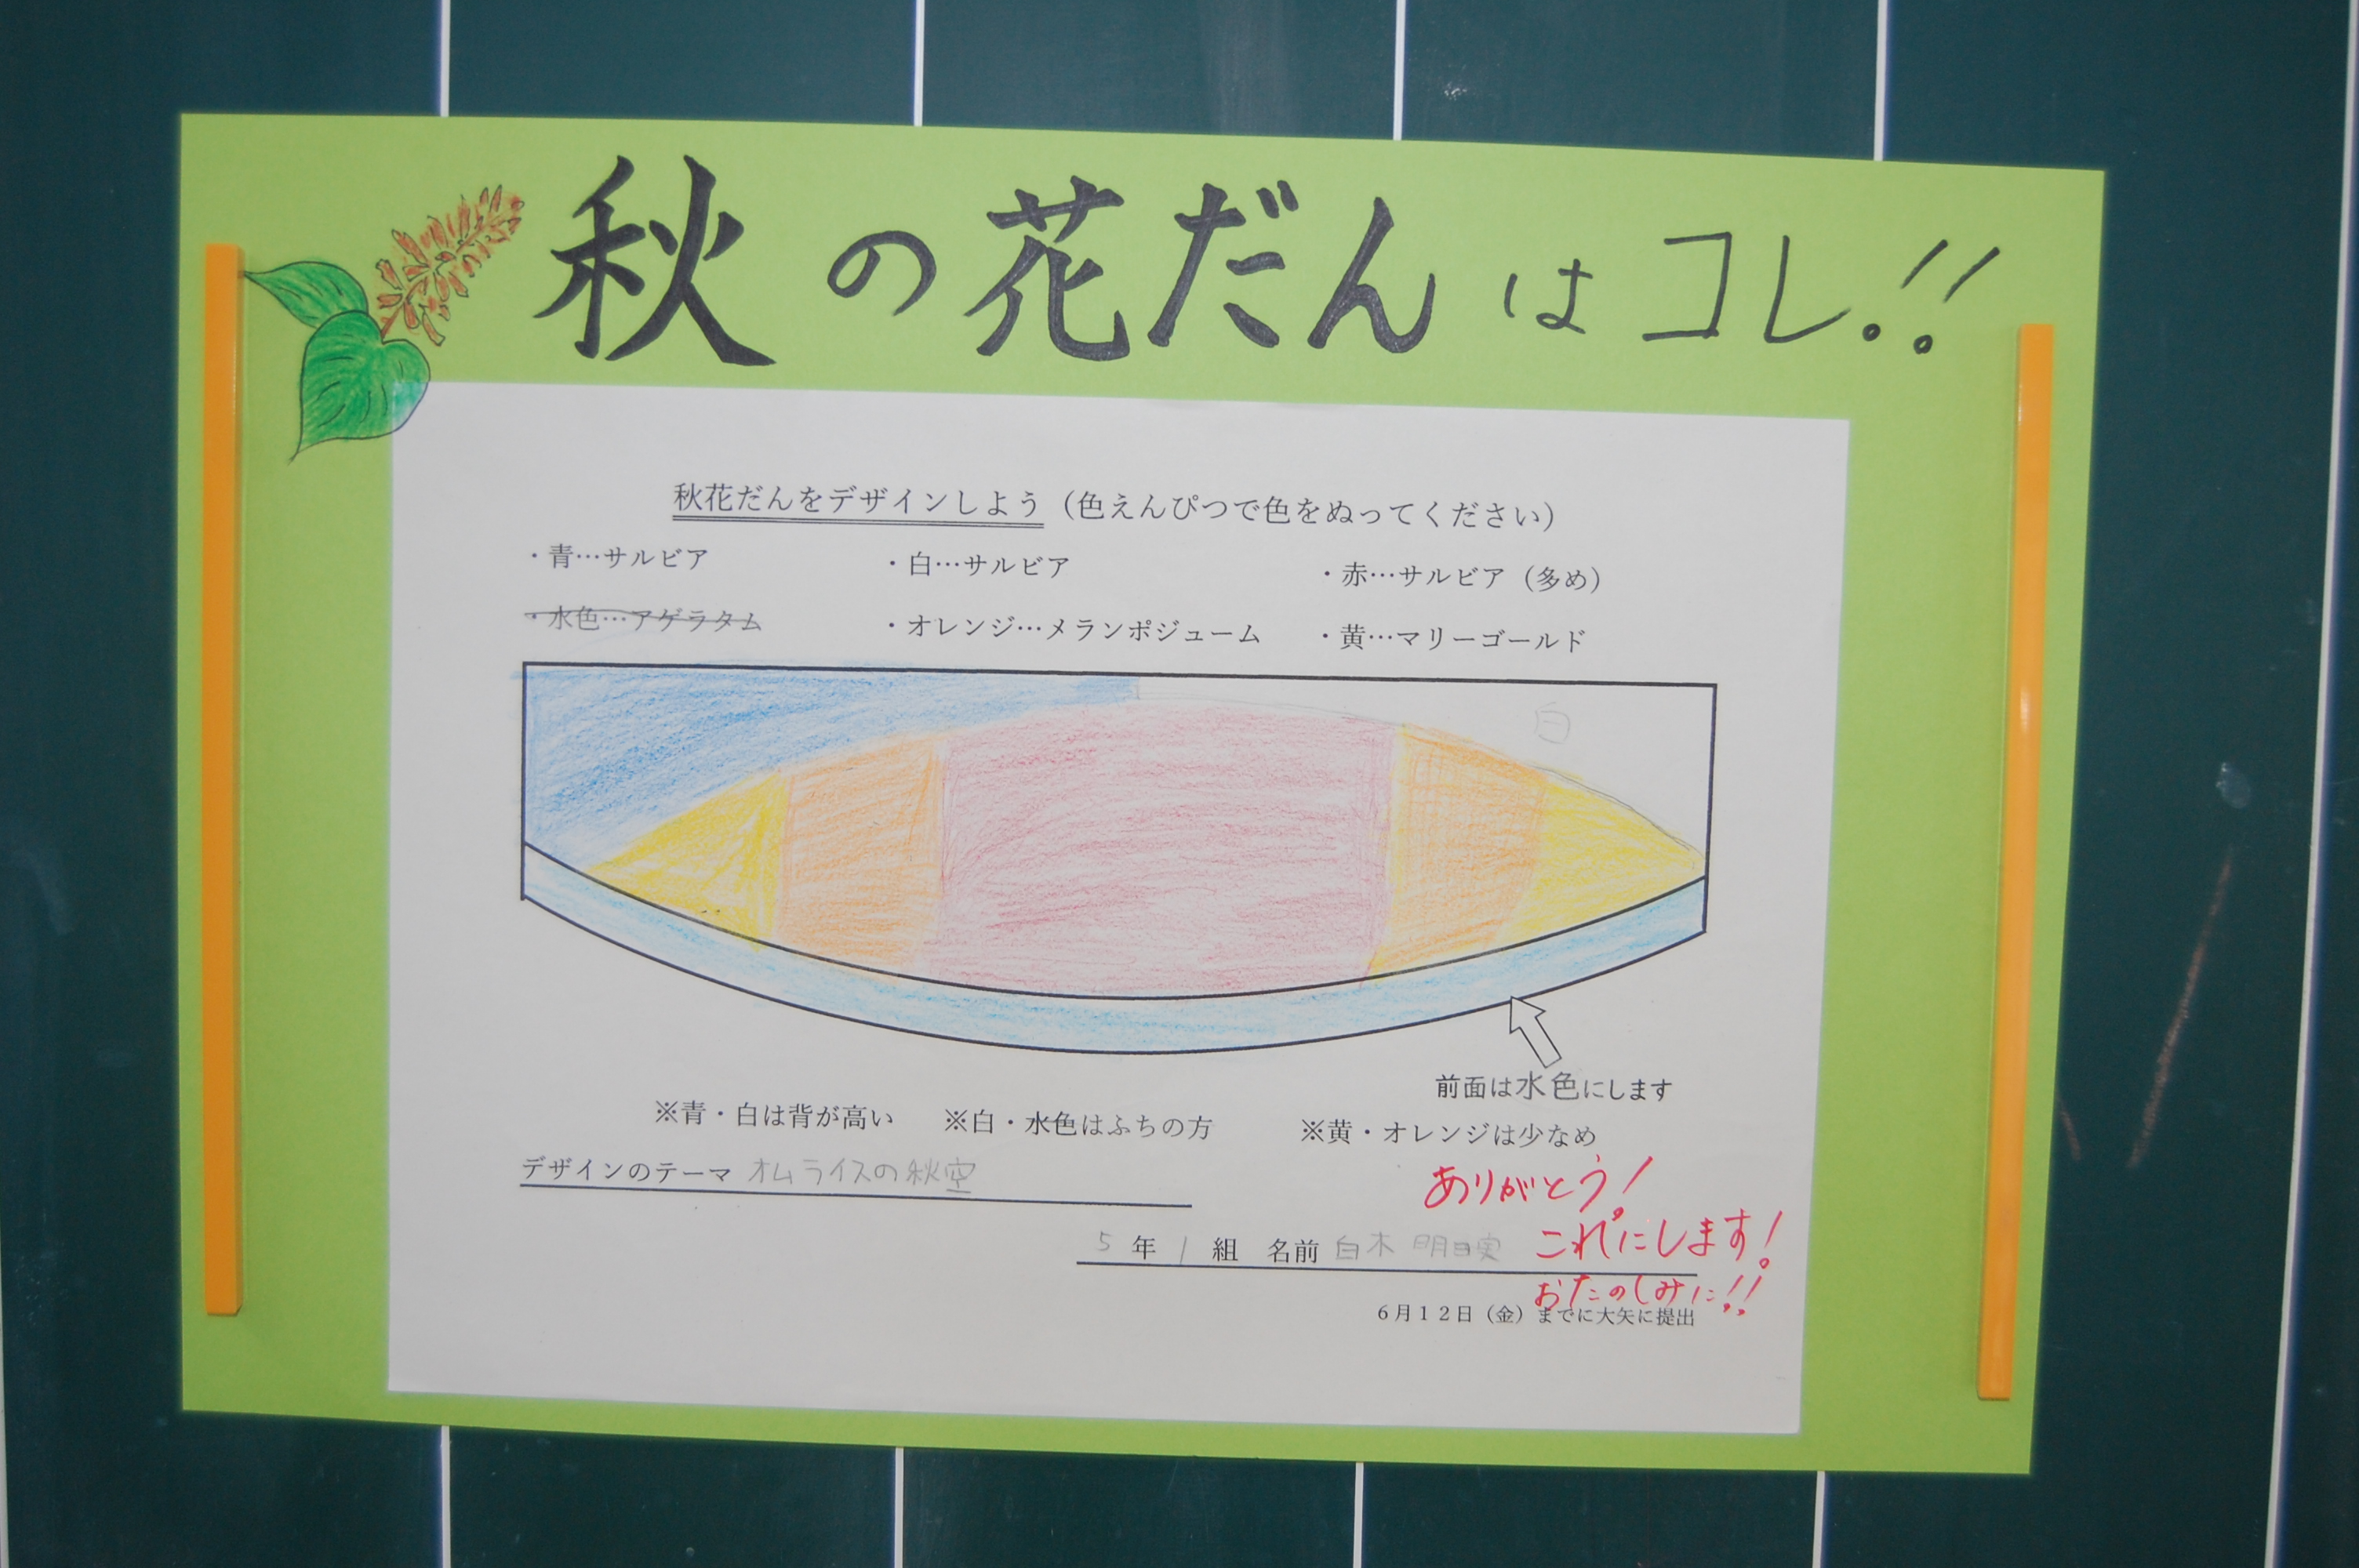 秋の花だんはコレ!!
秋花だんをデザインしよう（色えんぴつで色をぬってください）
・青…サルビア ・白…サルビア ・赤…サルビア（多め）
・水色…アゲラタム ・オレンジ…メランポジューム ・黄…マリーゴールド
白
前面は水色にします
※青・白は背が高い ※白・水色はふちの方 ※黄・オレンジは少なめ
デザインのテーマ オムライスの秋空
ありがとう!
5年1組 名前 白木 明日実
これにします!
おたのしみに!!
6月12日（金）までに大矢に提出